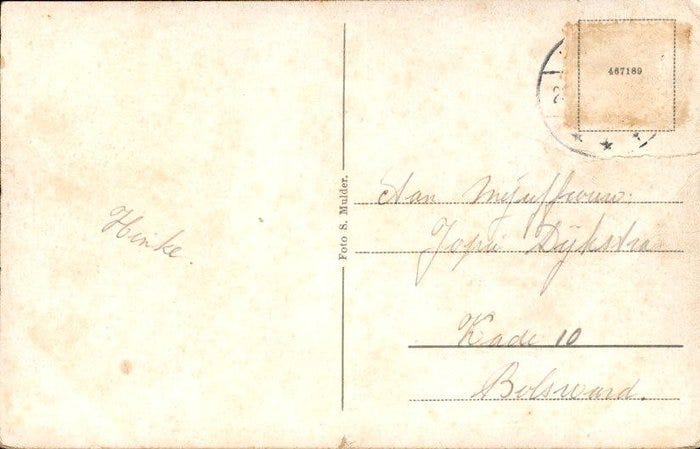 467189
Hinke.
Foto S. Mulder.
Aan Mejuffrouw.
Jopie Dijkstra
Kade 10
Bolsward.